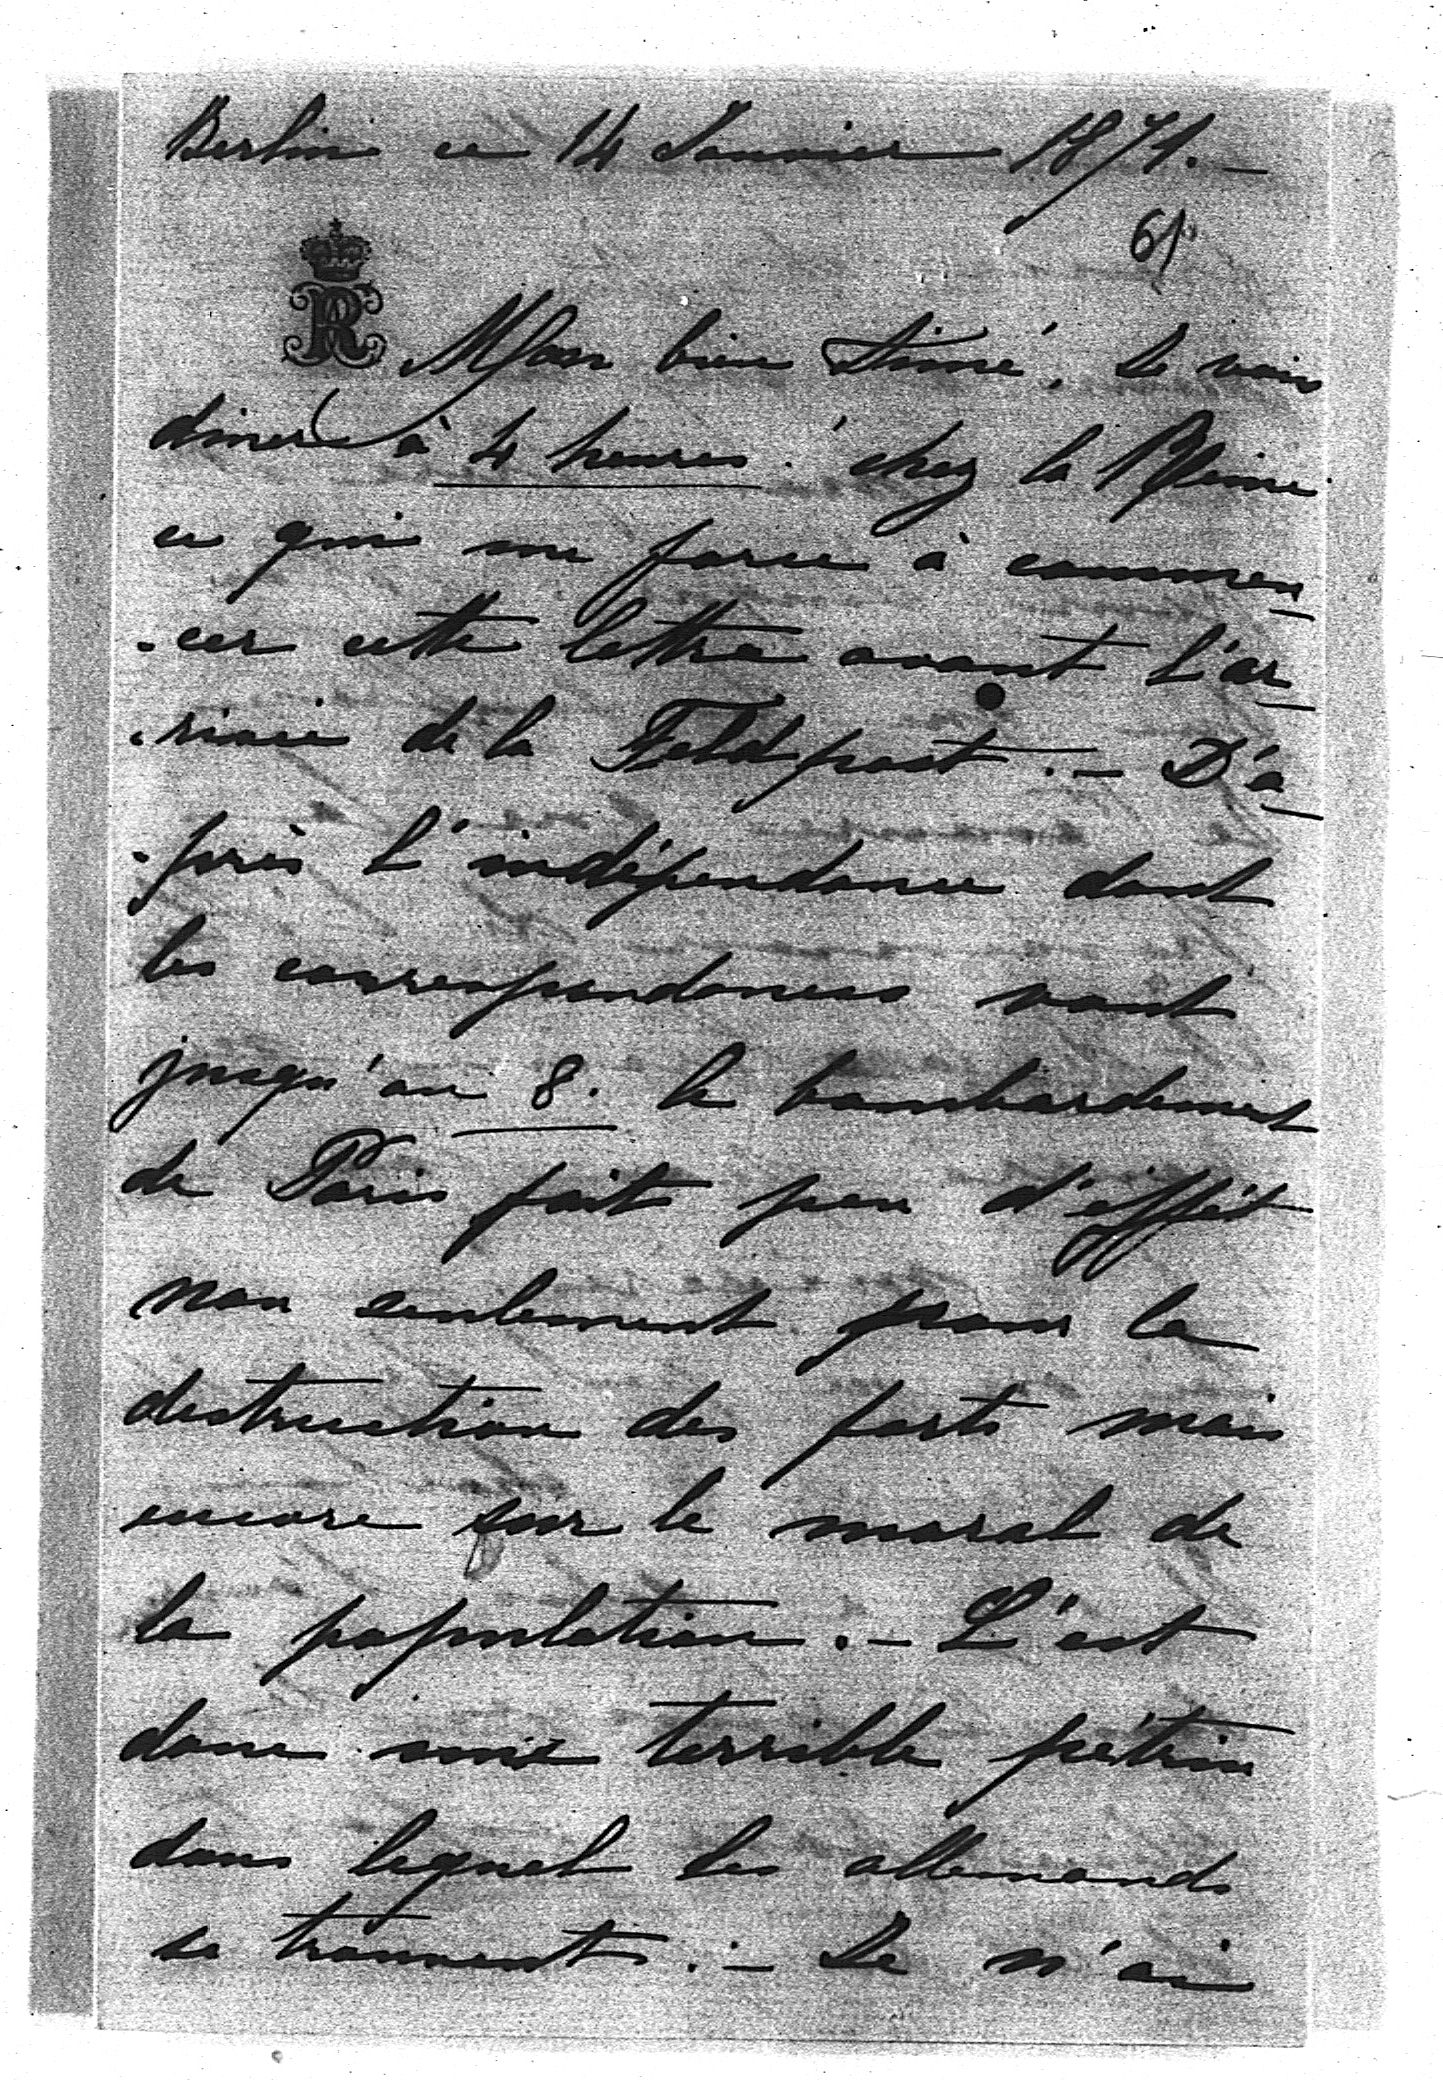 Berlin ce 14 Janvier 1871. —
61
R
Mon bien aimé, Je vais
diner à 4 heures chez la Reine
ce qui me force à commen
- cer cette lettre avant l'ar
- rivée de la Feldpost. — D'a
- près l'indépendance dont
les correspondances vont
jusqu'au 8. le bombardement
de Paris fait peu d'effèt
non seulement pour la
destruction des forts mais
encore sur le moral de
la population. — C'est
donc une terrible pétrin
dans lequel les allemands
se trouvent. — Je n'ai